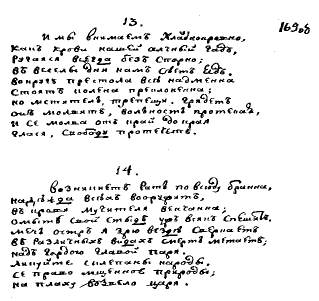 13.
И мы внимаемъ хладнокровно,
Какъ крови нашей алчный гадъ,
Ругаяся всегда безъ спорно;
Въ веселы дни намъ сѣетъ ядъ.
Вокругъ престола всѣ надменна
Стоятъ колена преклоненно;
Но мститель, трепещи. Грядетъ
Онъ молвитъ, вольность
И се молва отъ край до края
Глася, свободу протечетъ.
14.
Возникнетъ рать повсюду бранна,
надежда всѣхъ вооружитъ,
въ крови мучителя венчанна;
омыть свой стыдъ ужъ всякъ спешитъ.
Мечь остръ я зрю вездѣ сверкаетъ
въ различныхъ видахъ смерть летаетъ,
надъ гордою главой паря.
Ликуйте склепаны народы,
се право мщенное природы;
на плаху возвело царя.